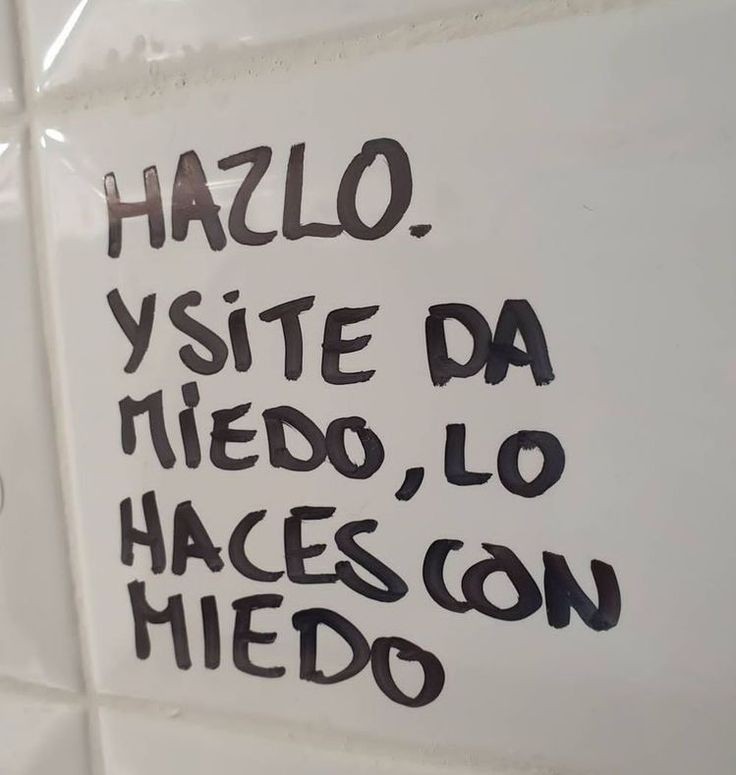 HAZLO.
Y SiTE DA
MiEDO, LO
HACES CON
MIEDO